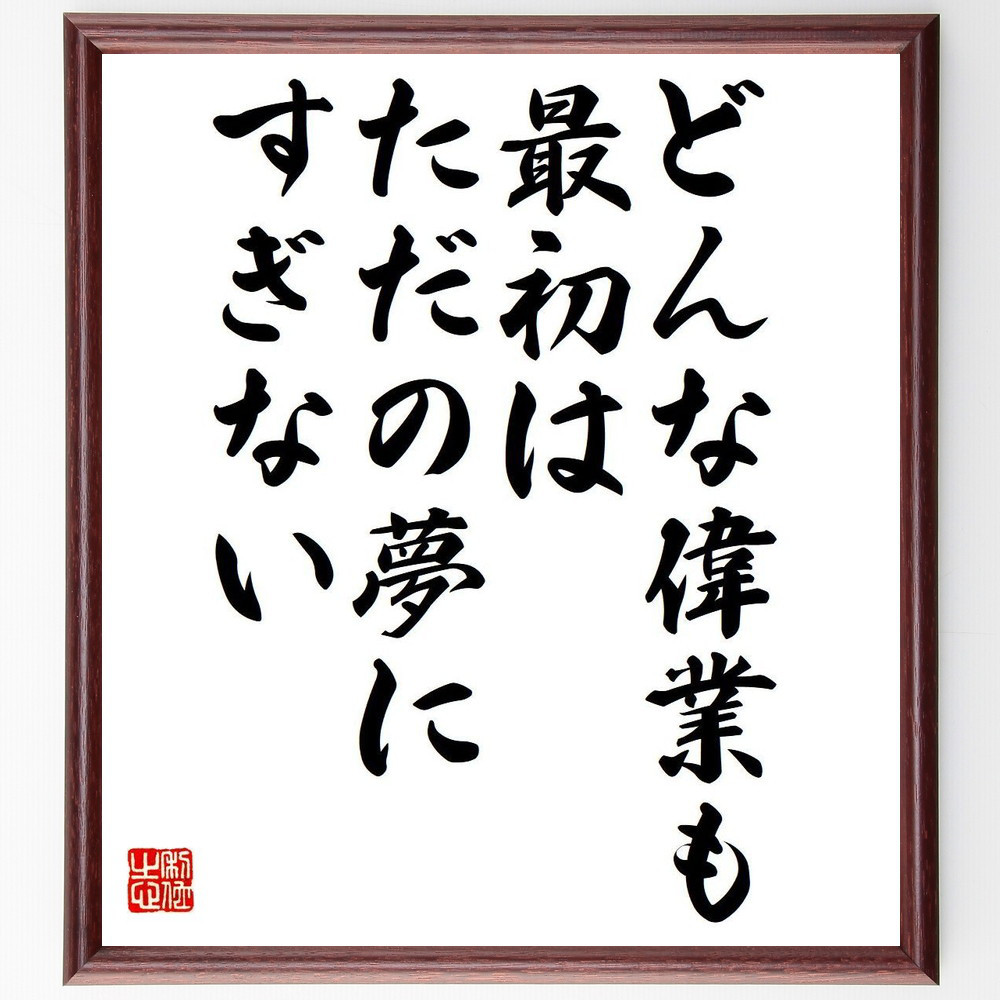 どんな偉業も
最初は
ただの夢に
すぎない